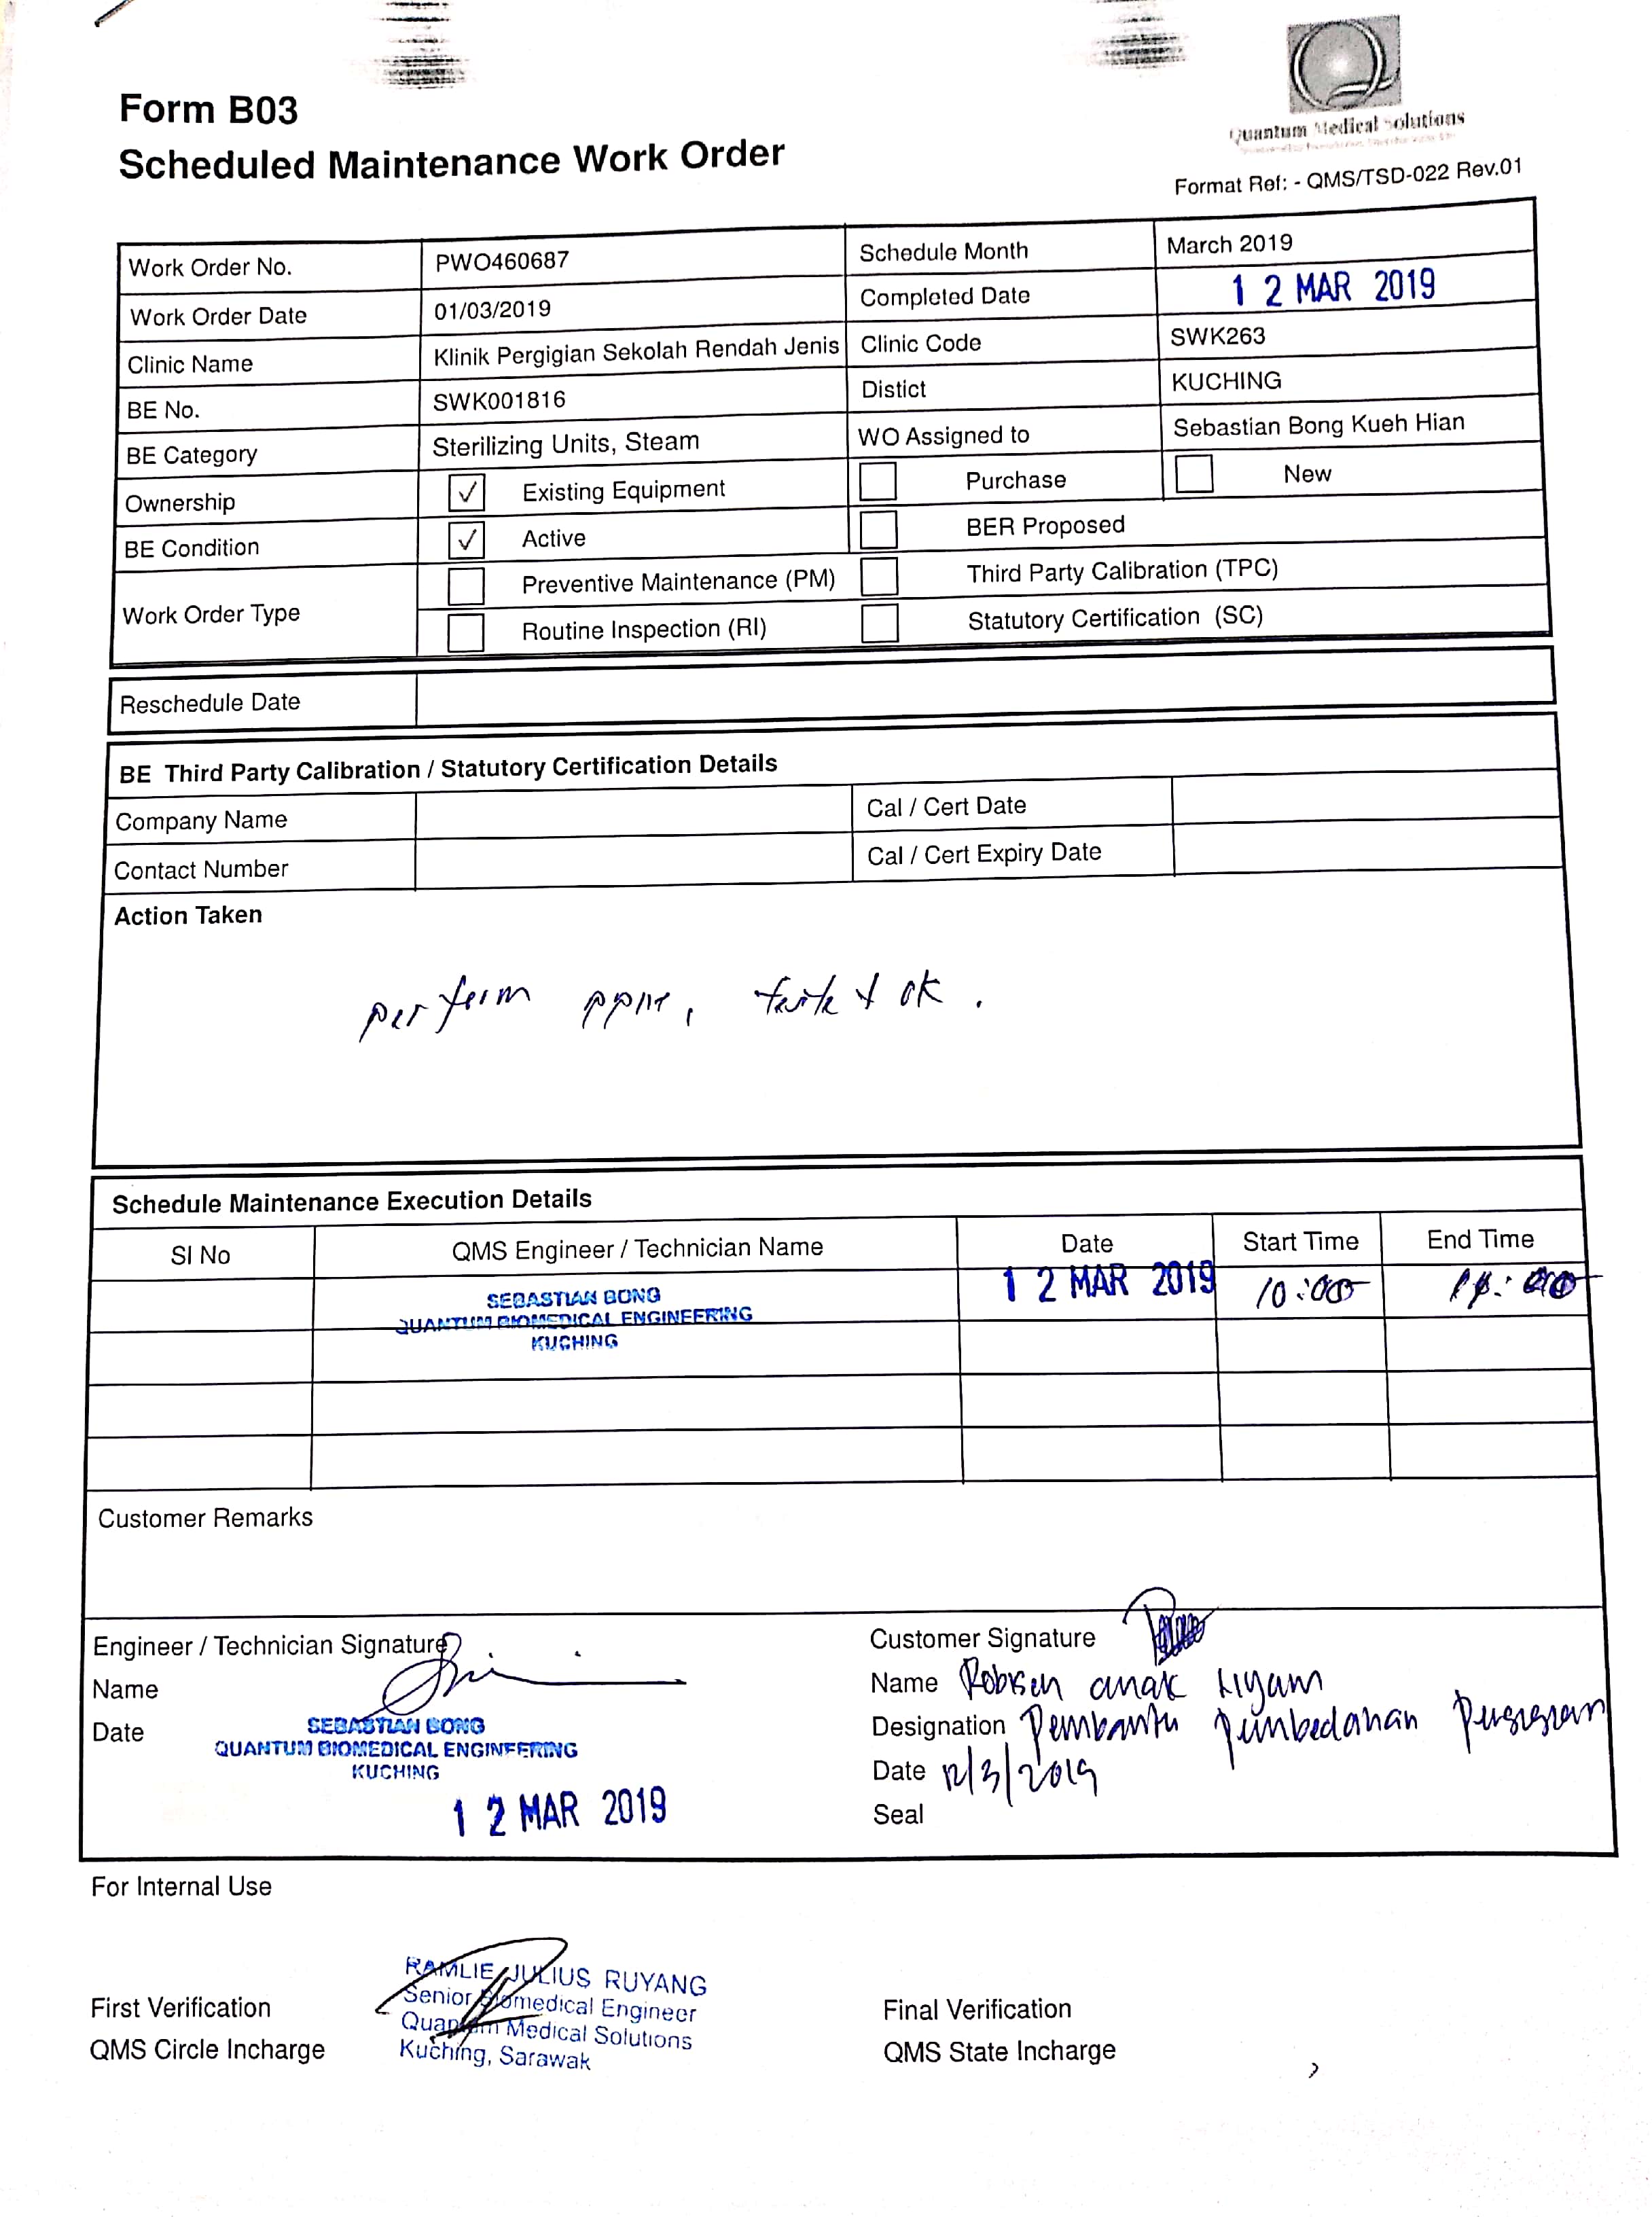 Quantum Medical Solutions
Form B03
Scheduled Maintenance Work Order
Format Ref: - QMS/TSD-022 Rev.01
Work Order No. PWO460687 Schedule Month March 2019
Work Order Date 01/03/2019 Completed Date 12 MAR 2019
Clinic Name Klinik Pergigian Sekolah Rendah Jenis Clinic Code SWK263
BE No. SWK001816 Distict KUCHING
BE Category Sterilizing Units, Steam WO Assigned to Sebastian Bong Kueh Hian
Ownership ✓ Existing Equipment Purchase New
BE Condition ✓ Active BER Proposed
Work Order Type
Preventive Maintenance (PM) Third Party Calibration (TPC)
Routine Inspection (RI) Statutory Certification (SC)
Reschedule Date
BE Third Party Calibration / Statutory Certification Details
Company Name Cal / Cert Date
Contact Number Cal / Cert Expiry Date
Action Taken
perform ok.
Schedule Maintenance Execution Details
SI No QMS Engineer / Technician Name Date Start Time End Time
SEBASTIAN BONG 12 MAR 2019 10:00
QUANTUM BIOMEDICAL ENGINEERING
KUCHING
Customer Remarks
Engineer / Technician Signature
Name
Date
SEBASTIAN BONG
QUANTUM BIOMEDICAL ENGINEERING
KUCHING
12 MAR 2019
Customer Signature
Name anak
Designation Pembantu
Date 12/3/2019
Seal
For Internal Use
First Verification
QMS Circle Incharge
RAMLIE JULIUS RUYANG
Senior Biomedical Engineer
Quantum Medical Solutions
Kuching, Sarawak
Final Verification
QMS State Incharge